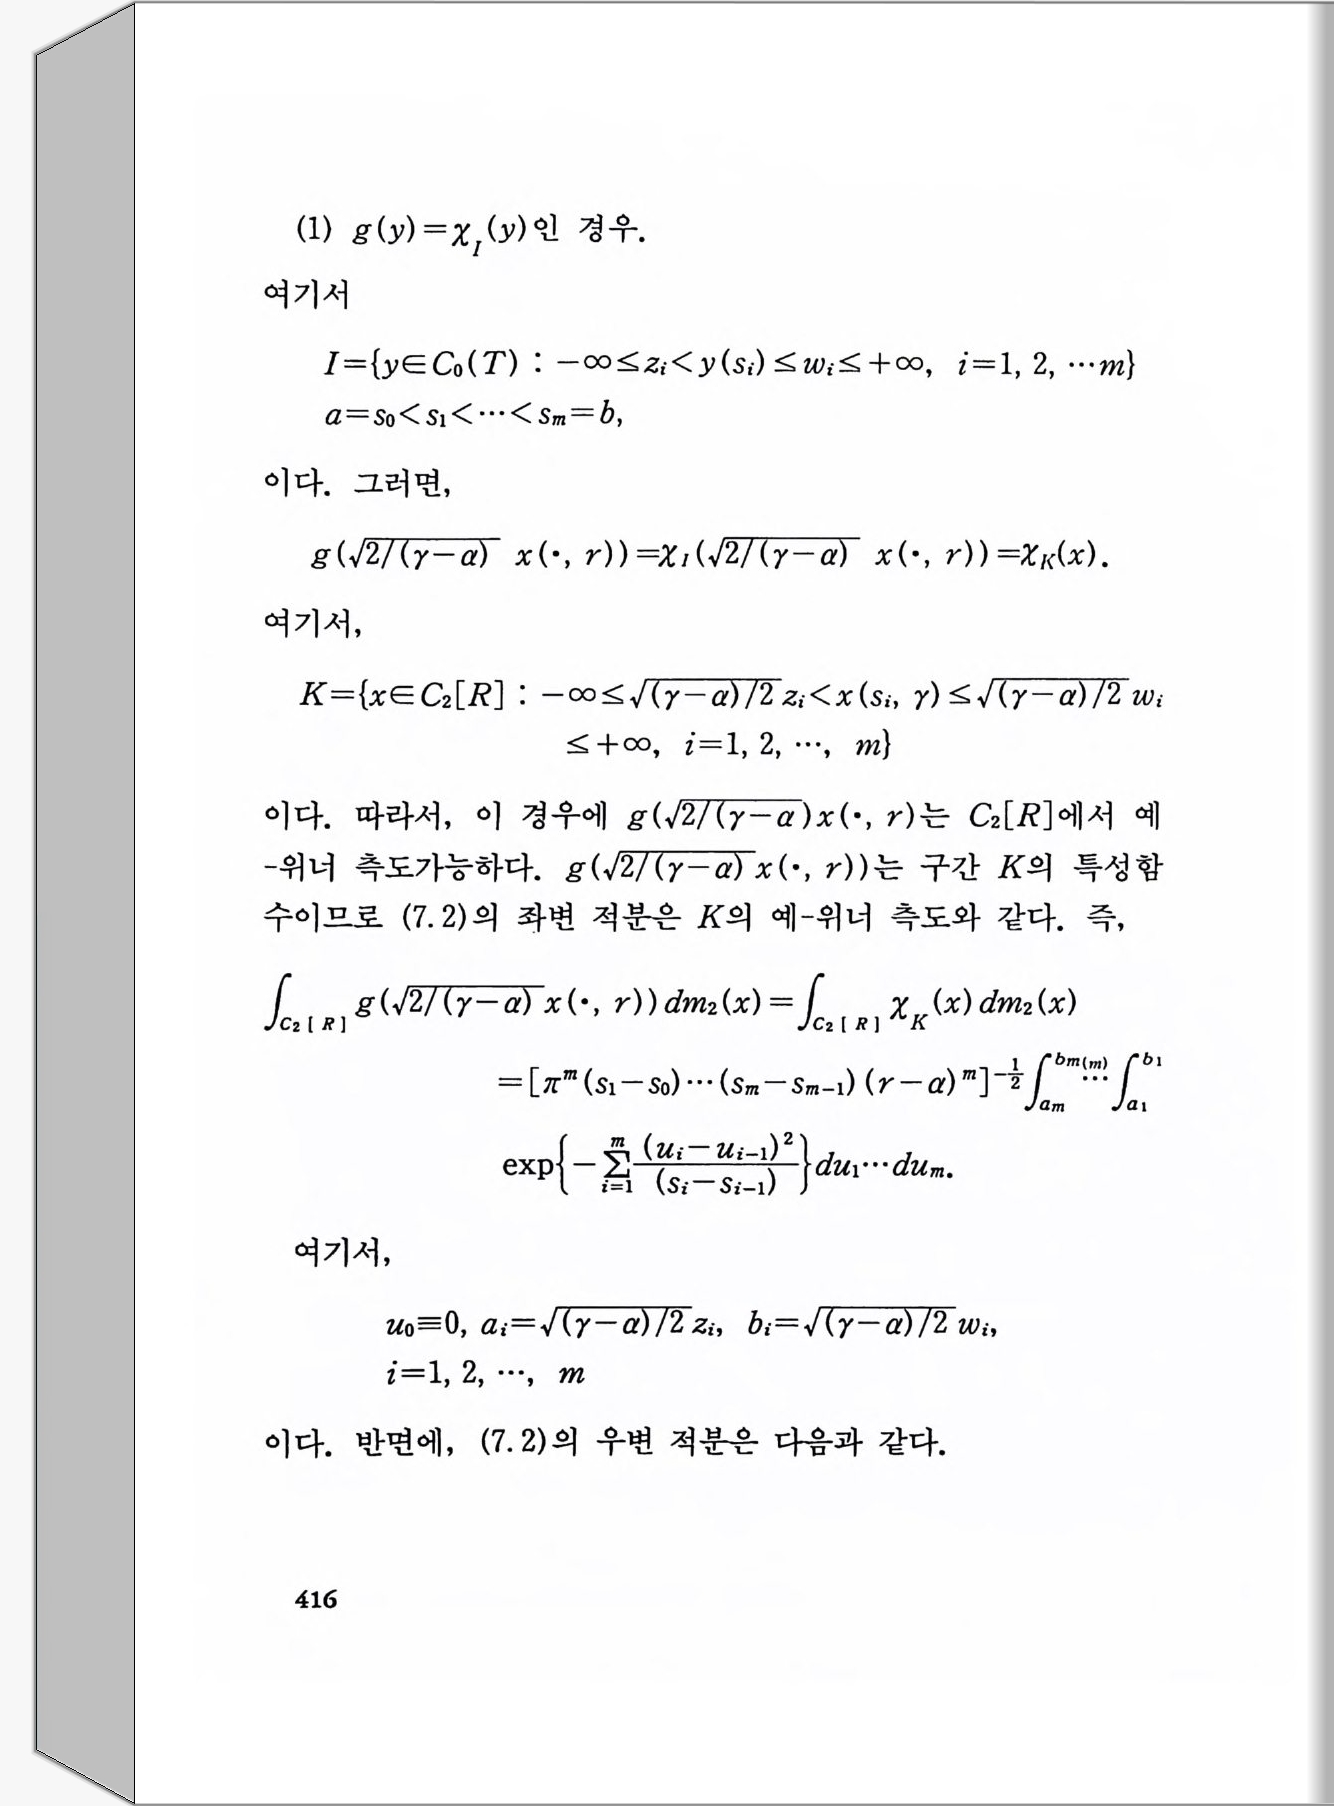 (1) g(y)=χ_I(y)인 경우.
여기서
I={y∈C₀(T) : −∞≤z_i<y(s_i)≤w_i≤+∞, i=1, 2, ⋯m}
a=s₀<s₁<⋯<s_m=b,
이다. 그러면,
g(√2/(γ−α) x(·, r))=χ_I(√2/(γ−α) x(·, r))=χ_K(x).
여기서,
K={x∈C₂[R] : −∞≤√(γ−α)/2 z_i<x(s_i, γ)≤√(γ−α)/2 w_i
≤+∞, i=1, 2, ⋯, m}
이다. 따라서, 이 경우에 g(√2/(γ−α)x(·, r)는 C₂[R]에서 예
-위너 측도가능하다. g(√2/(γ−α) x(·, r))는 구간 K의 특성함
수이므로 (7.2)의 좌변 적분은 K의 예-위너 측도와 같다. 즉,
∫_{C₂[R]} g(√2/(γ−α) x(·, r))dm₂(x)=∫_{C₂[R]} χ_K(x)dm₂(x)
=[π^m(s₁−s₀)⋯(s_m−s_{m−1})(r−α)^m]^{−1/2} ∫_{a_m}^{b_m} (m)⋯ ∫_{a₁}^{b₁}
exp{−∑_{i=1}^{m} (u_i−u_{i−1})²/(s_i−s_{i−1})}du₁⋯du_m.
여기서,
u₀≡0, a_i=√(γ−α)/2 z_i, b_i=√(γ−α)/2 w_i,
i=1, 2, ⋯, m
이다. 반면에, (7.2)의 우변 적분은 다음과 같다.
416